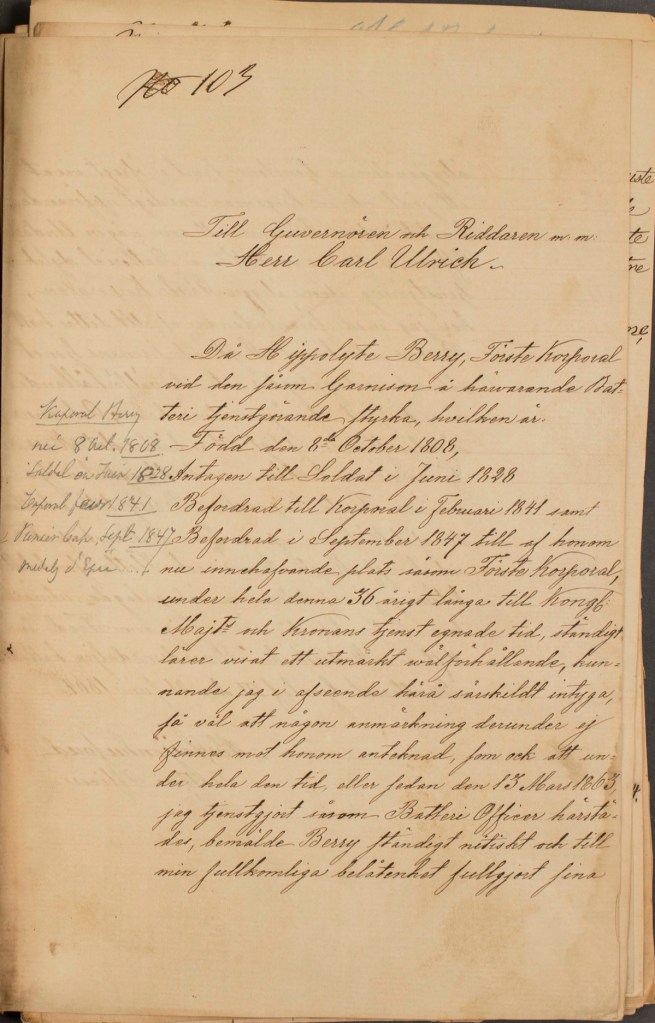 No 103
Till Guvernören och Riddaren m. m:
Herr Carl Ulrich.
Då Hippolyte Berry, Förste Korporal
vid den såsom Garnison å härvarande Bat-
teri tjenstgörande styrka, hvilken är.
Född den 8de October 1808,
Antagen till Soldat i Juni 1828
Befordrad till Korporal i Februari 1841 samt
Befordrad i September 1847 till af honom
nu innehafvande plats såsom Förste Korporal,
under hela denna 36 årigt långa till Kongl:
Majts och Kronans tjenst egnade tid, ständigt
lärer visat ett utmärkt wälförhållande, kun-
nande jag i afseende härå särskildt intyga,
så väl att någon anmärkning derunder ej
finnes mot honom antecknad, som ock att un-
der hela den tid, eller sedan den 13 Mars 1863,
jag tjenstgjort såsom Batteri Officer härstä-
des, bemälde Berry ständigt nitiskt och till
min fullkomliga belåtenhet fullgjort sina
Kaporal Berry
né 8 Oct. 1808
Soldat en Juin 1828
Caporal 1841
Premier Cap. Sept 1847